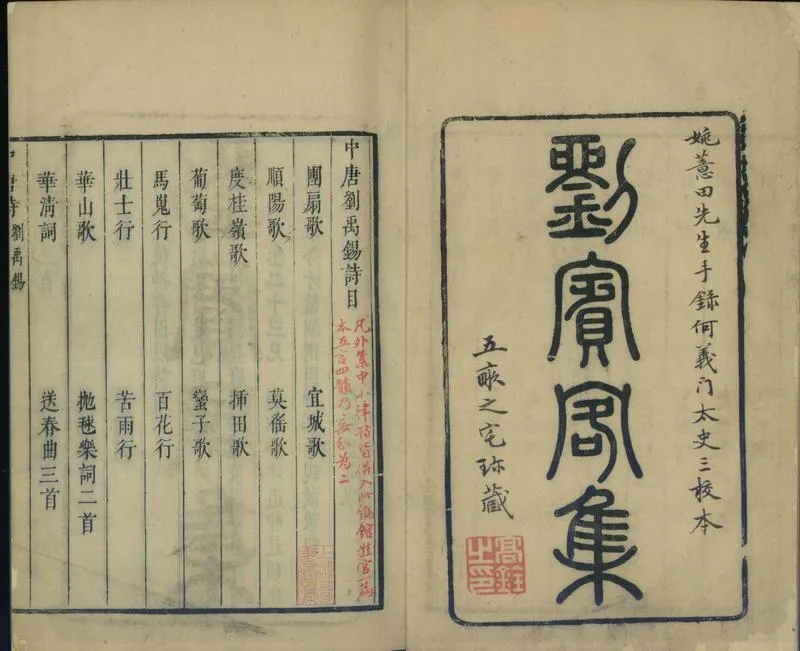 姚薏田先生手錄何義门太史三校本
劉賓客集
五畝之宅珎藏
中唐劉禹錫詩目
凡外集中小律詩皆併入此編館娃宮一篇
本五言四韻乃妄分為二
團扇歌 宜城歌
順陽歌 莫傜歌
度桂嶺歌 揷田歌
葡萄歌 蠻子歌
馬嵬行 百花行
壯士行 苦雨行
華山歌 抛毬樂詞二首
華清詞 送春曲三首
中唐詩 劉禹錫